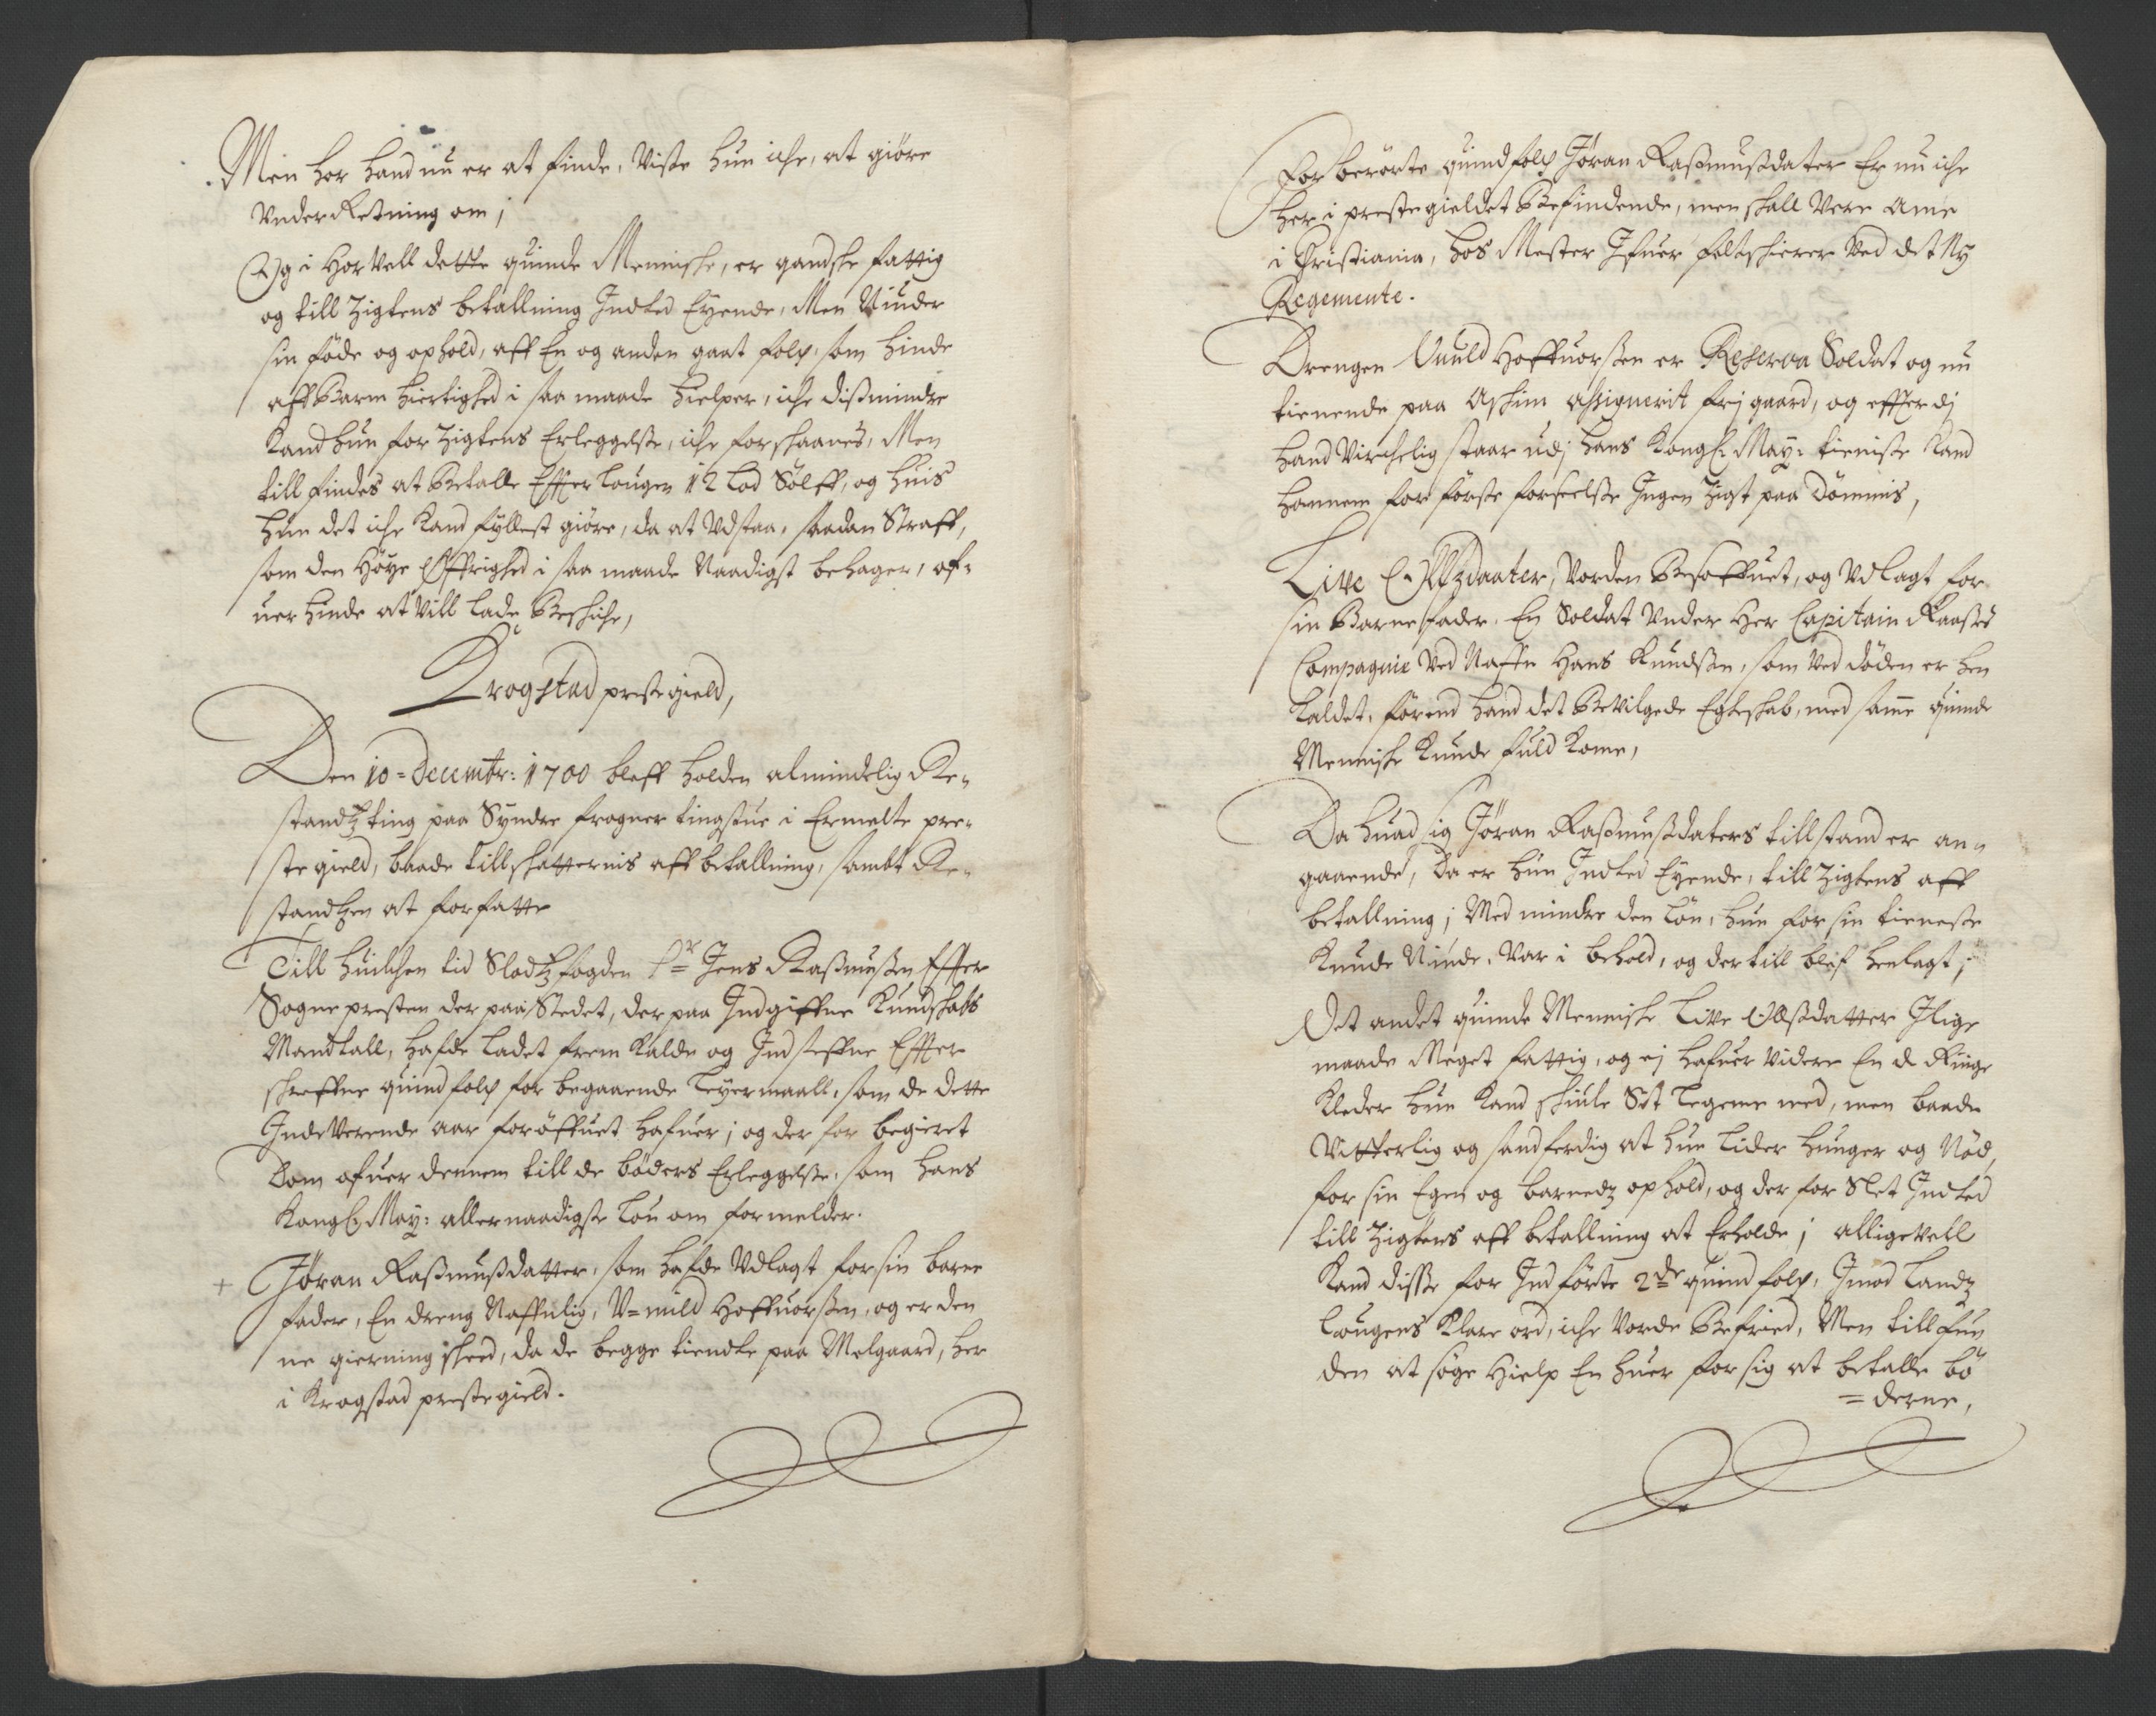 Men hor hand nu er at finde, Viste hun iche, at giöre
Vnder Retning om;
Og i hor Vell dette quinde Menniche, er gandsche fattig
og till Zigtens betallning Indted Eyende, Men Vinder
sin föde og ophold, aff En og anden gaat folch, som hinde
aff Barmhiertighed i saa maade hielper, iche dißmindre
Kand hun for Zigtens Erleggelsse, iche forschaanes, Men
till findes at Betalle Effter Lougen 12 Lod Sölff, og huis
hun det iche Kand fyllest giöre, da at Vdstaa, saadan Straff,
som den Höye Öffrighed i saa maade Naadigst behager, of-
uer hinde at Vill lade Beschiche,
Krogstad prestegield,
Den 10= Decembr: 1700 bleff holden almindelig Re-
standtz ting paa Syndre frogner tingstue i Ermelte pre-
stegield, baade till schatternis aff betallning, sambt Re-
standtzen at forfatte
Till huilchen tid Slodtz fogden Sr Jens Raßmußen Effter
Sogne presten der paa Stedet, der paa Indgiffne Kundschabs
Mandtall, hafde Ladet frem Kalde og Indsteffne Effter
schreffne quindfolch for begaaende Leyermaall, som de dette
Inde Verende aar foröffuet hafuer; og der for begieret
Dom ofuer dennem till de böders Erleggelsse, som hans
Kongl. May: allernaadigste Lou om formelder.
+ Jöran Raßmußdatter, som hafde Vdlagt for sin barne
fader, En dreng Naffnlig, V=nuld Hoffuorßen, og er den
ne gierning scheed, da de begge tiendte paa Molgaard, her
i Krogstad prestegield.
For berörte quindfolch Jöran Raßmußdater Er nu iche
her i prestegieldet Befindende, men schall Vere Ame
i Christiania, hos Mester Ifuer feltschierer Ved det Ny
Regemente.
Drengen Vnuld Hoffuorßen er Reserva Soldat og nu
tienende paa Aschim assignerit frj gaard, og effterdj
hand Virchelig staar udj hans Kongl. May: tieniste Kand
hannem for förste forseelsse Ingen Zigt paa Dömmis,
Live Ollzdaater, Vorden Besoffuet, og Vdlagt for
sin Barnefader. En Soldat Vnder Her Capitain Raaßes
Compagnie Ved Naffn Hans Knudßen, som Ved döden er hen
Kaldet, förend hand det Bevilgede Egteschab, med same quinde
Menniche Kunde fuld Kome,
Da huad sig Jöran Raßmußdaters tillstand er an-
gaaende, Da er hun Indted Eyende, till Zigtens aff
betallning; Med mindre den Lön, hun for sin tieneste
Kunde Vinde, Var i behold, og der till blef henlagt;
Det andet quinde Menniche Live Ollßdatter Ilige
maade Meget fattig, og ej hafuer Videre End Ringe
Kleder hun Kand schiule Sit Legeme med, men baade
Vitterlig og sandferdig at hun Lider hunger og Nöd,
for sin Egen og barnedtz ophold, og der for Slet Indted
till Zigtens aff betallning at Erholde; alligevell
Kand disse for Indförte 2de quindfolch, Imod Landtz
Lougens Klare ord, iche Vorde Befried, Men till fun
den at söge Hielp En huer for sig at betalle bö
=derne,